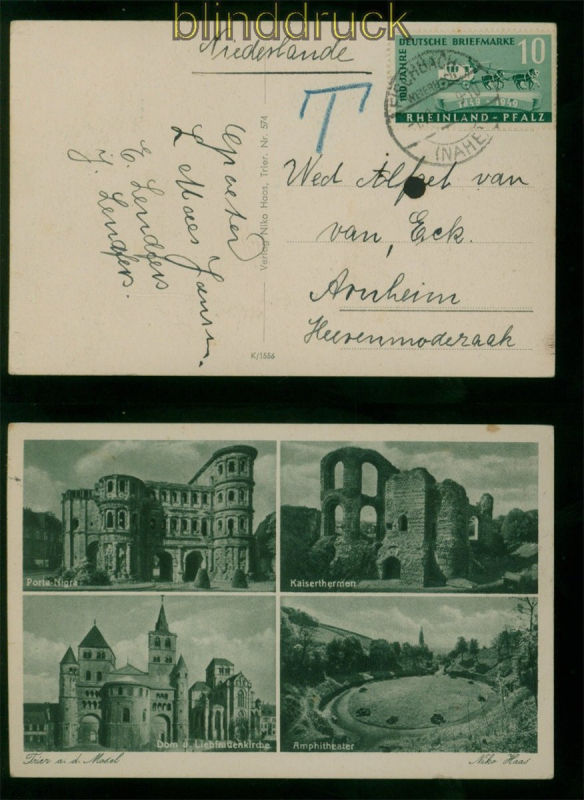 blinddruck
Niederlande
T
100 JAHRE DEUTSCHE BRIEFMARKE 10
1849 1949
RHEINLAND-PFALZ
(NAHE)
Groeten
L Maes Jansen.
E. Lenders
J. Lenders.
Verlag Niko Haas, Trier. Nr. 574
K/1556
Wed Alfet van
van, Eck.
Arnheim
Heesenmoderaak
Porta-Nigra
Kaiserthermen
Dom u. Liebfrauenkirche
Amphitheater
Trier a. d. Mosel
Niko Haas